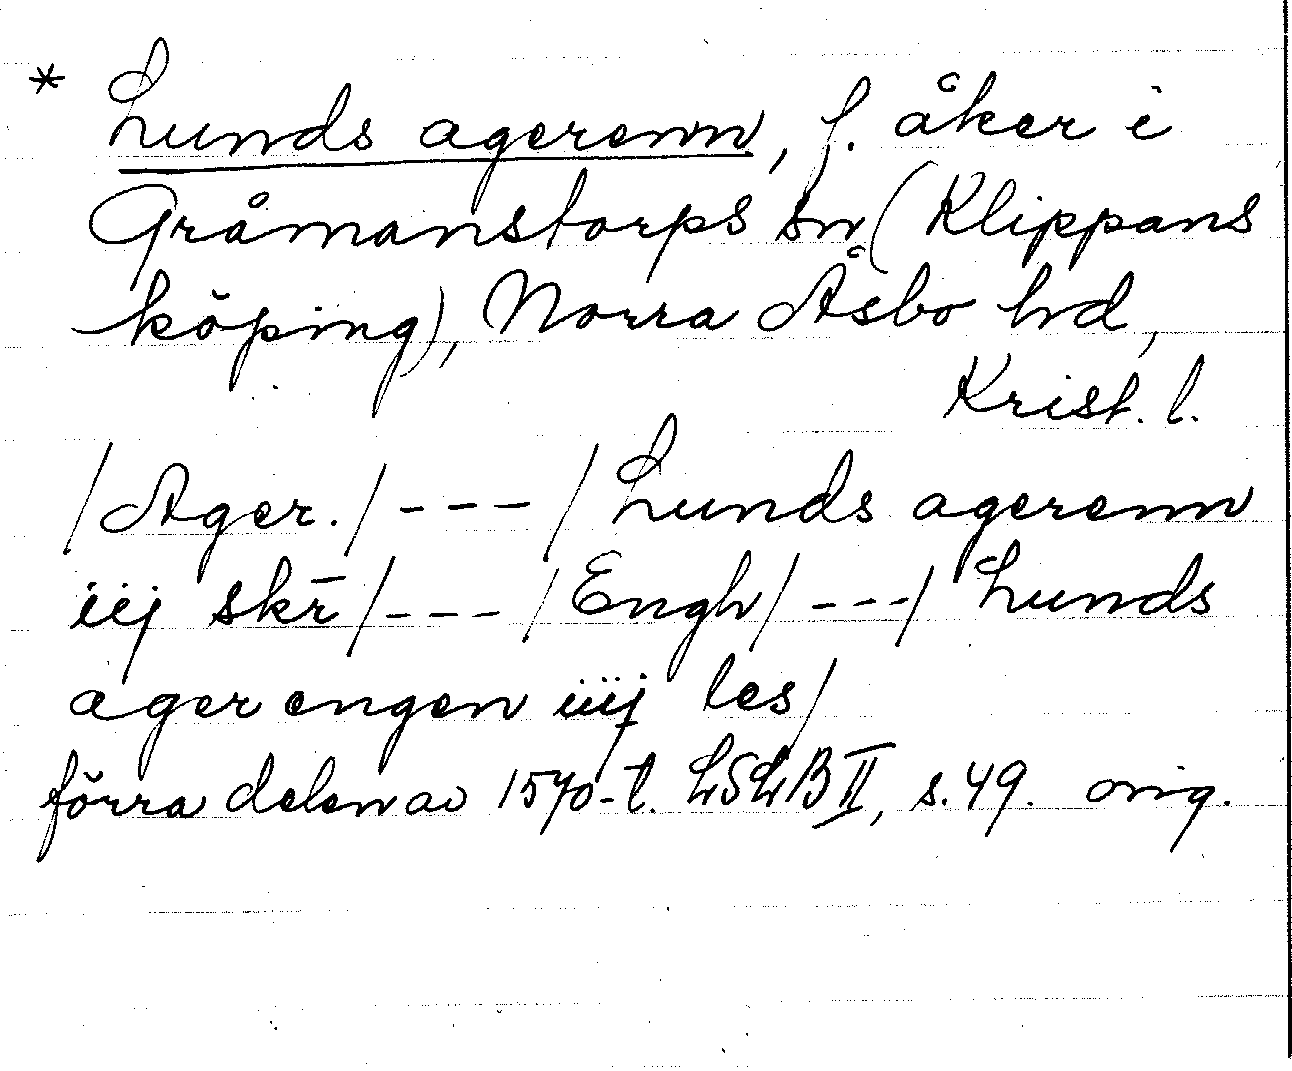 * Lunds agerenn, f. åker i
Gråmanstorps sn (Klippans
köping), Norra Åsbo hd,
Krist. l.
/Ager./ --- / Lunds agerenn
iij skr̄/ --- /Engh/ ---/ Lunds
ager engen iiij les/
förra delen av 1570-t. LSLB II, s. 49. orig.